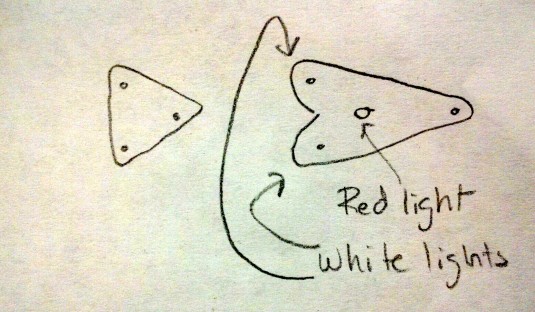 Red light
White lights